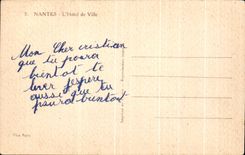 7. NANTES - L'Hôtel de Ville
Mon Cher cristian
que tu poura
bientot te
lever j'espere
aussi que tu
poura bientot